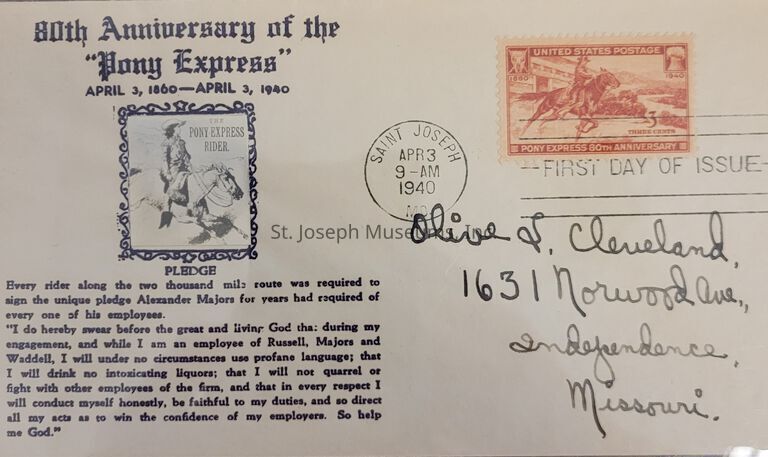 80th Anniversary of the
"Pony Express"
APRIL 3, 1860—APRIL 3, 1940
THE
PONY EXPRESS
RIDER.
PLEDGE
Every rider along the two thousand mile route was required to
sign the unique pledge Alexander Majors for years had required of
every one of his employees.
"I do hereby swear before the great and living God that during my
engagement, and while I am an employee of Russell, Majors and
Waddell, I will under no circumstances use profane language; that
I will drink no intoxicating liquors; that I will not quarrel or
fight with other employees of the firm, and that in every respect I
will conduct myself honestly, be faithful to my duties, and so direct
all my acts as to win the confidence of my employers. So help
me God."
SAINT JOSEPH
APR 3
9-AM
1940
MO.
UNITED STATES POSTAGE
1860 1940
3
THREE CENTS
PONY EXPRESS 80TH ANNIVERSARY
FIRST DAY OF ISSUE
St. Joseph Museums, Inc.
Olive L. Cleveland,
1631 Norwood Ave.,
Independence,
Missouri.